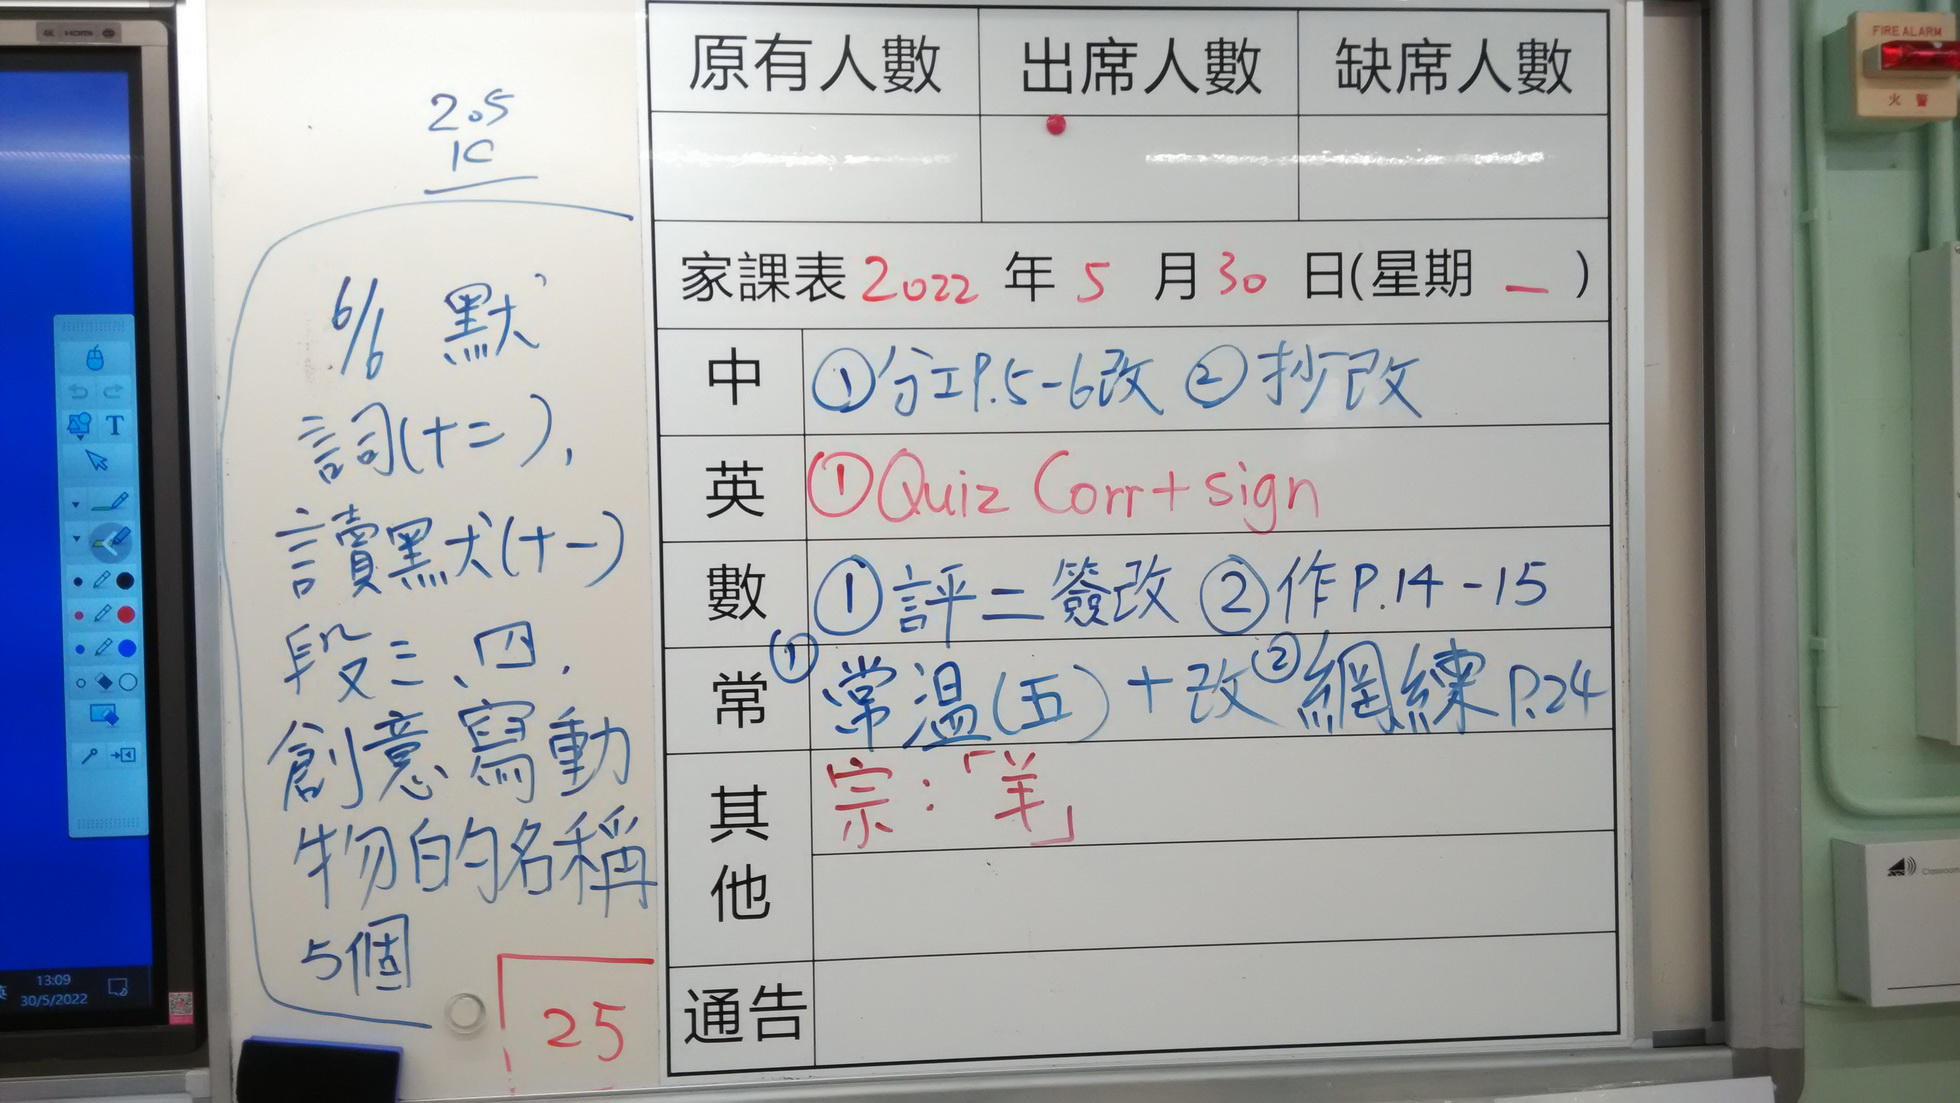 4K HDMI
205
1C
6/6 默
詞(十二),
讀默(十一)
段三、四,
創意寫動
物的名稱
5個
25
原有人數 出席人數 缺席人數
家課表 2022 年 5 月 30 日(星期 一 )
中 ①分工P.5-6改 ②抄改
英 ①Quiz Corr+sign
數 ①評二簽改 ②作P.14-15
常 ①常溫(五)+改 ②網練P.24
其他 宗:「羊」
通告
T
13:09
30/5/2022
FIRE ALARM
火警
Classroom